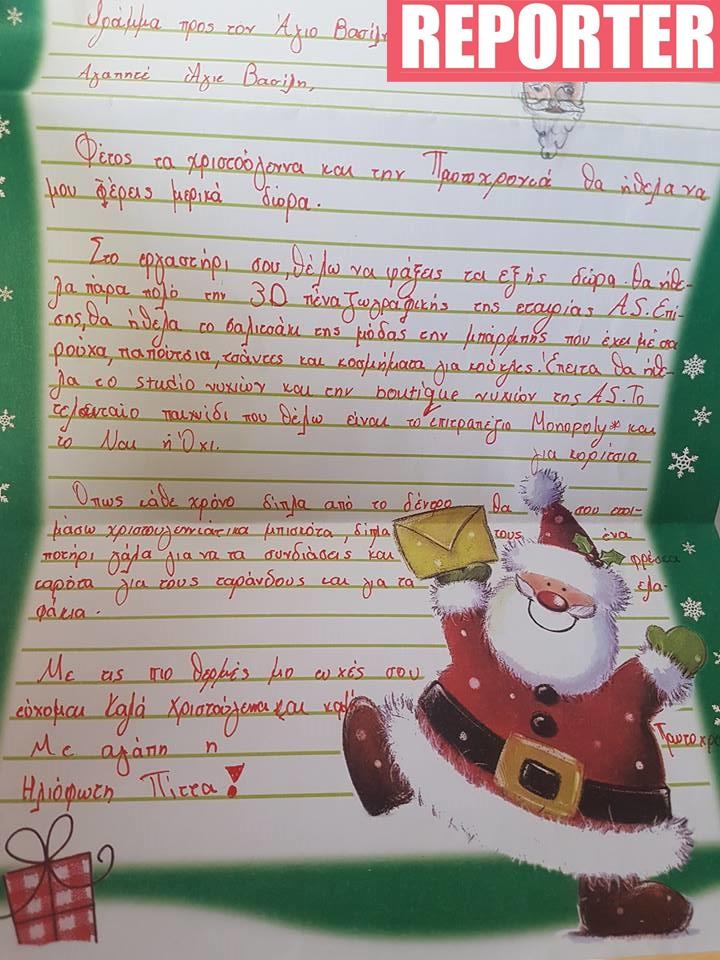 REPORTER
Γράμμα προς τον Άγιο Βασίλη
Αγαπητέ Άγιε Βασίλη,
Φέτος τα χριστούγεννα και την Πρωτοχρονιά θα ήθελα να
μου φέρεις μερικά δώρα.
Στο εργαστήρι σου, θέλω να φτάξεις τα εξής δώρα. Θα ήθε-
λα πάρα πολύ την 3D πένα ζωγραφικής της εταιρίας A.S. Επί-
σης, θα ήθελα το βαλιτσάκι της μόδας την μπάρμπης που έχει μέσα
ρούχα, παπούτσια, τσάντες και κοσμήματα για κούκλες. Έπειτα θα ήθε-
λα το studio νυχιών και την boutique νυχιών της A.S. Το
τελευταίο παιχνίδι που θέλω είναι το επιτραπέζιο Monopoly* και
το Ναι ή Όχι. για κορίτσια
Όπως κάθε χρόνο δίπλα από το δέντρο θα σου ετοι-
μάσω χριστουγεννιάτικα μπισκότα, δίπλα τους ένα
ποτήρι γάλα για να τα συνδιάσεις και φρέσκα
καρότα για τους ταράνδους και για τα ελα-
φάκια.
Με τις πιο θερμές μου ευχές σου
εύχομαι Καλά Χριστούγεννα και καλή
Πρωτοχρο
Με αγάπη η
Ηλιόφωτη Πίττα!